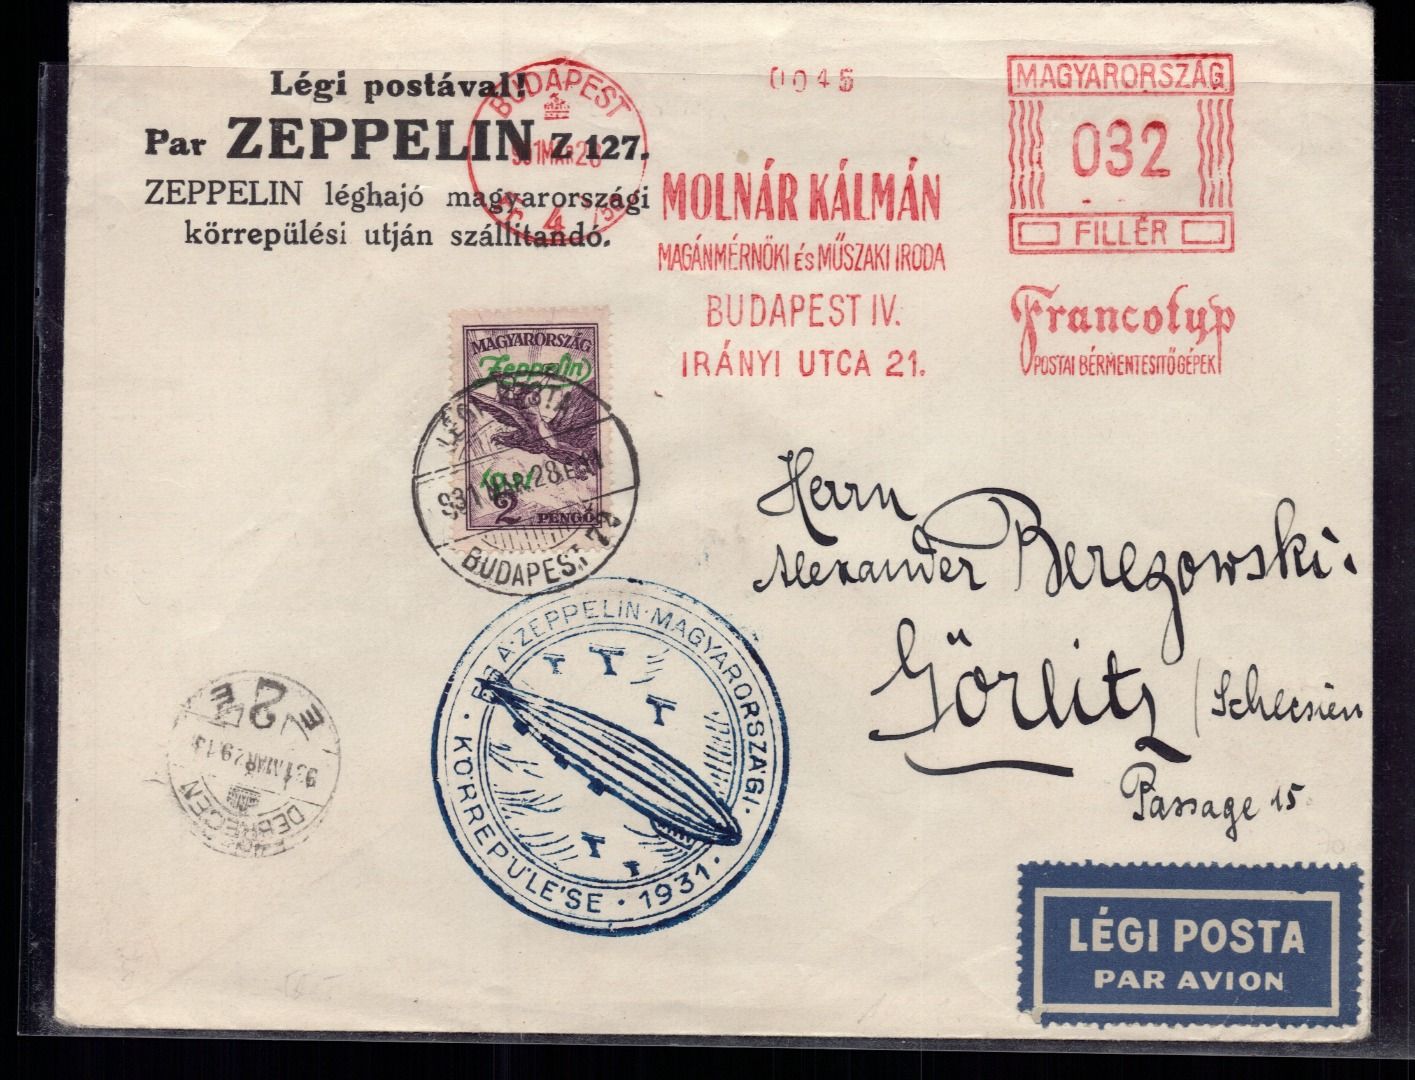 Légi postával!
Par ZEPPELIN Z 127.
ZEPPELIN léghajó magyarországi
körrepülési utján szállítandó.
BUDAPEST
931 MAR 28
4
0045
MAGYARORSZÁG
032
FILLÉR
MOLNÁR KÁLMÁN
MAGÁNMÉRNÖKI és MŰSZAKI IRODA
BUDAPEST IV.
IRÁNYI UTCA 21.
Francotyp
POSTAI BÉRMENTESITŐGÉPEK
MAGYARORSZÁG
Zeppelin
1931
2 PENGŐ
LÉGI POSTA
931 MAR 28 E 11
BUDAPEST 72
Herrn
Alexander Berezowski.
Görlitz / Schlesien
Passage 15
A · ZEPPELIN · MAGYARORSZÁGI ·
· KÖRREPÜLÉSE · 1931 ·
2
931 MAR 29
DEBRECEN
LÉGI POSTA
PAR AVION